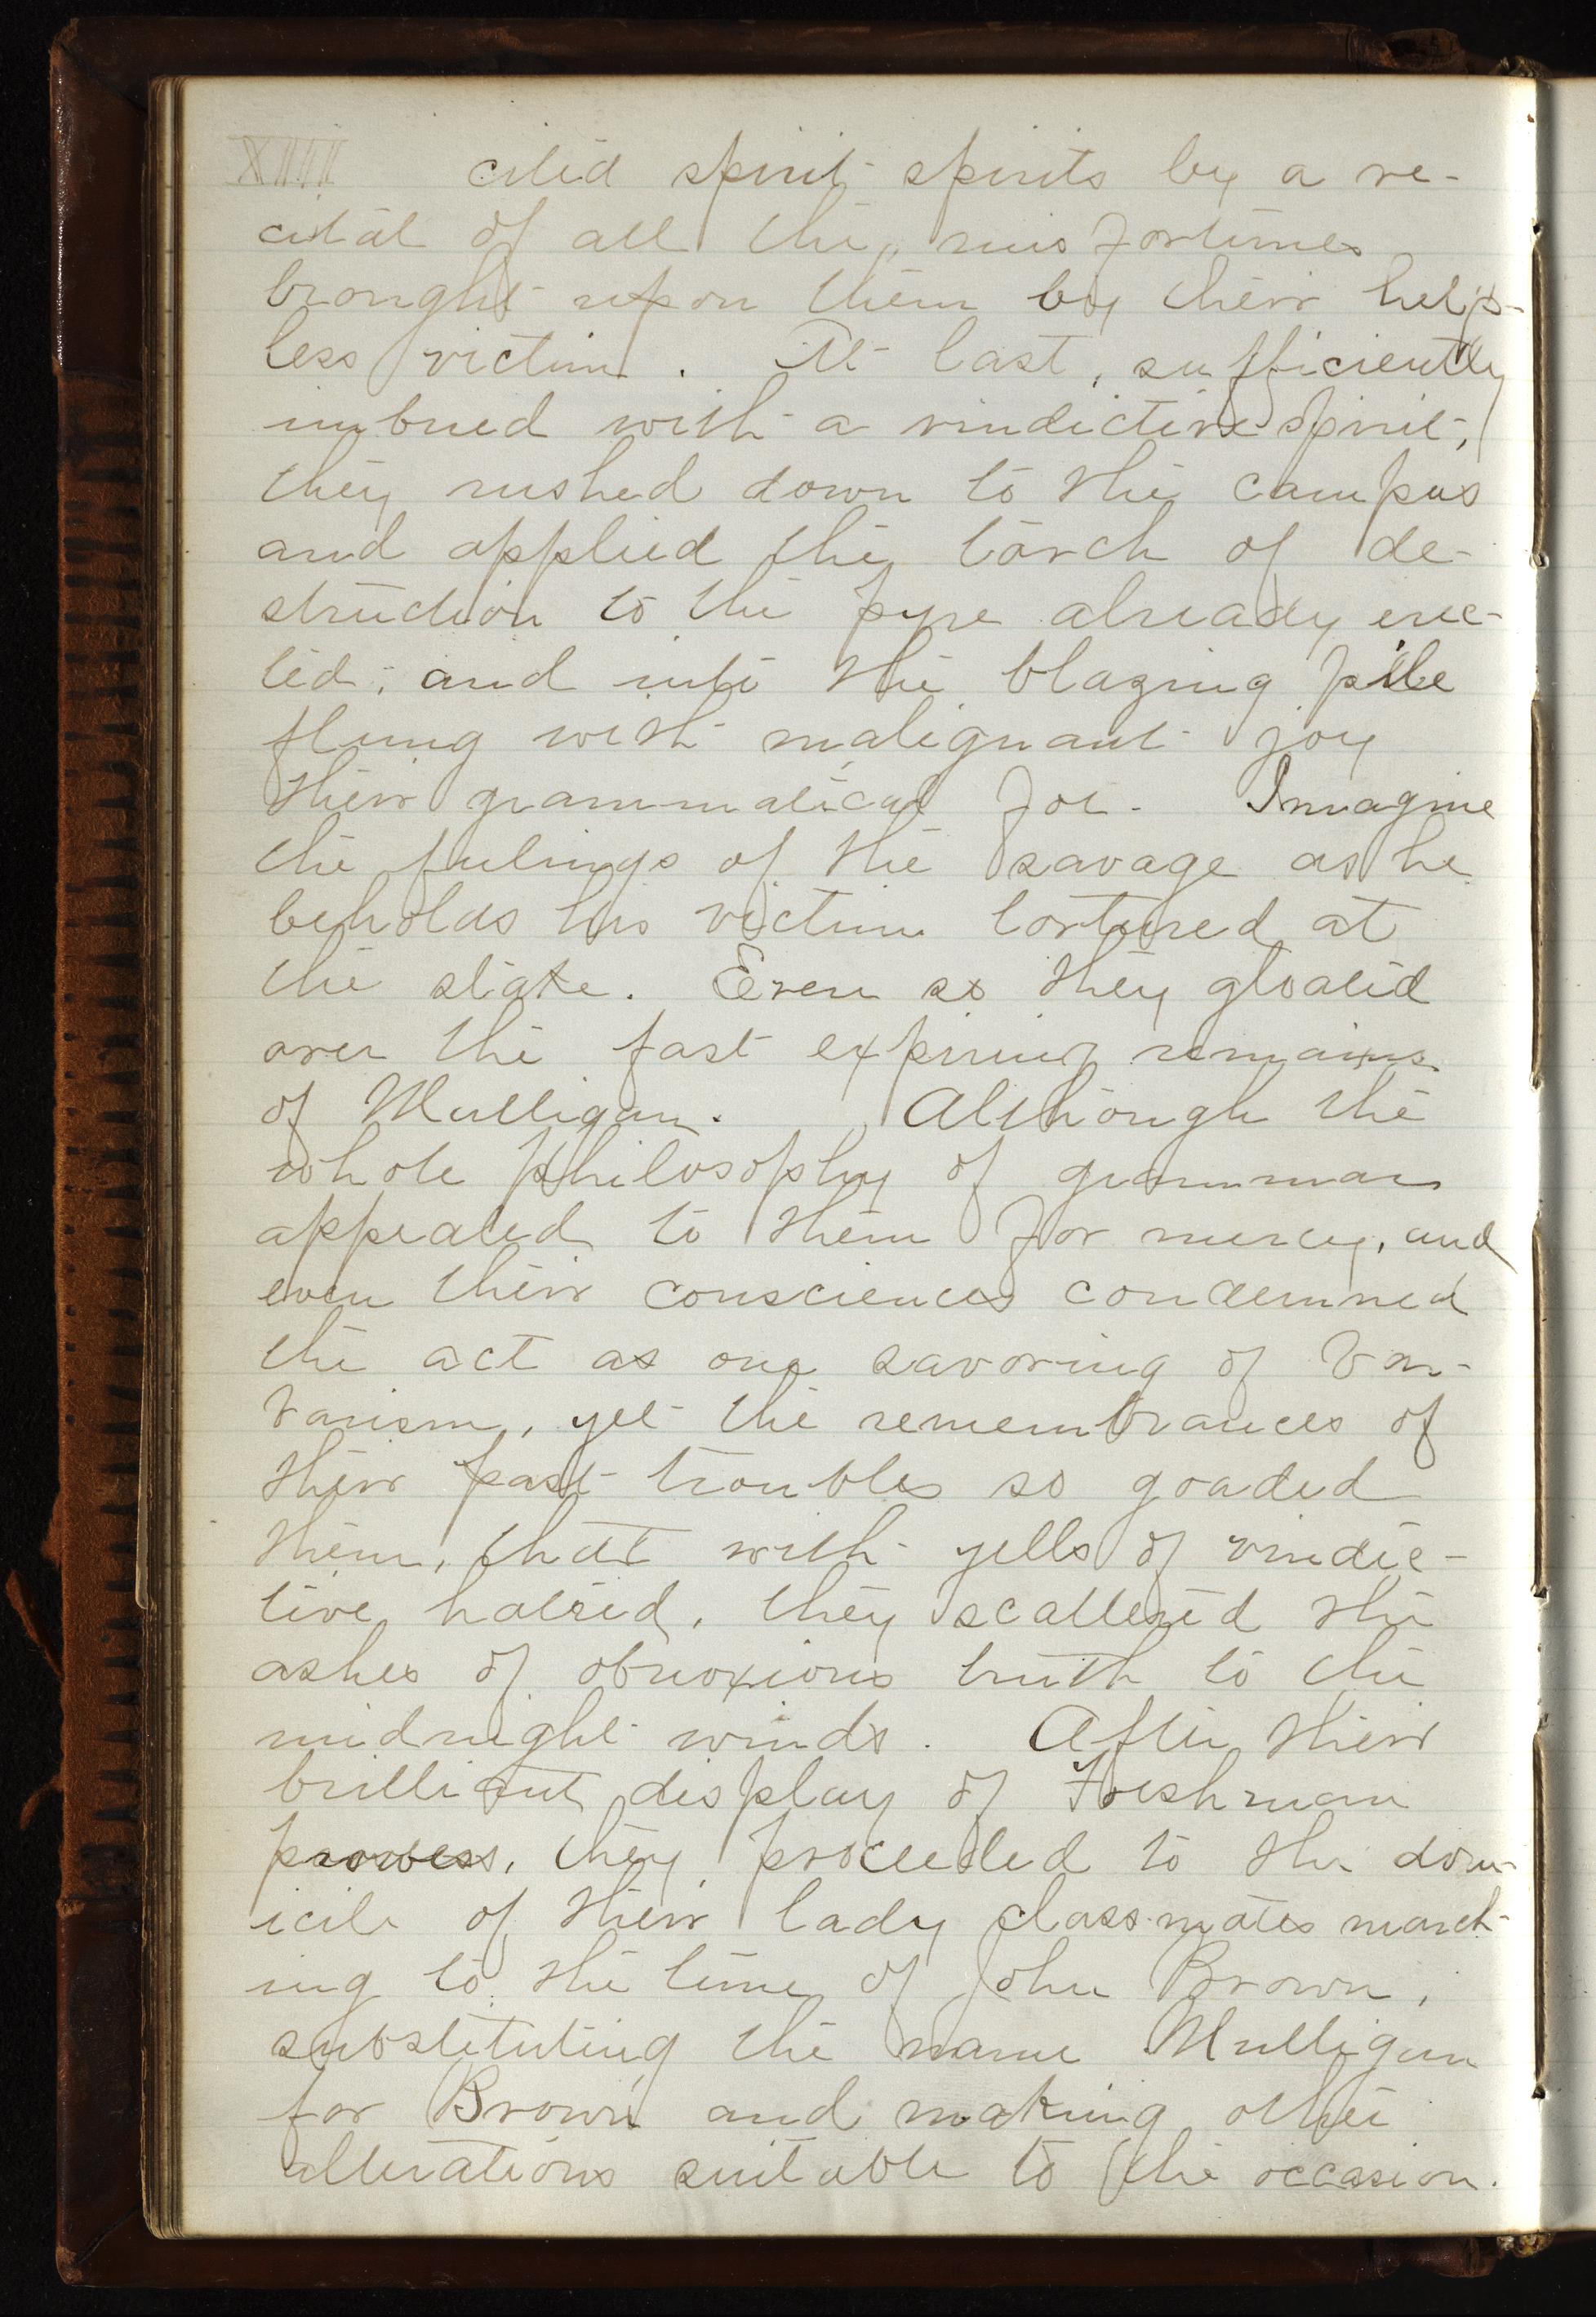 XIIII cited spirit spirits by a re-
cital of all the misfortunes
brought upon them by their help-
less victim. At last, sufficiently
imbued with a vindictive spirit,
they rushed down to the campus
and applied the torch of de-
struction to the pyre already erec-
ted; and into the blazing pile
flung with malignant joy
their grammatical foe. Imagine
the feelings of the savage as he
beholds his victim tortured at
the stake. Even so they gloated
over the fast expiring remains
of Mulligan. Although the
whole philosophy of grammar
appealed to them for mercy, and
even their consciences condemned
the act as one savoring of bar-
barism, yet the remembrances of
their past troubles so goaded
them, that with yells of vindic-
tive hatred, they scattered the
ashes of obnoxious truth to the
midnight winds. After their
brilliant display of Freshman
prowess, they proceeded to the dom-
icile of their lady classmates march-
ing to the time of John Brown,
substituting the name Mulligan
for Brown and making other
alterations suitable to the occasion.